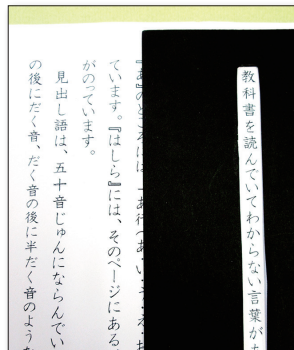 教科書を読んでいてわからない言葉が
ています。『はしら』には、そのページにある
がのっています。
見出し語は、五十音じゅんにならんでい
の後にだく音、だく音の後に半だく音のような